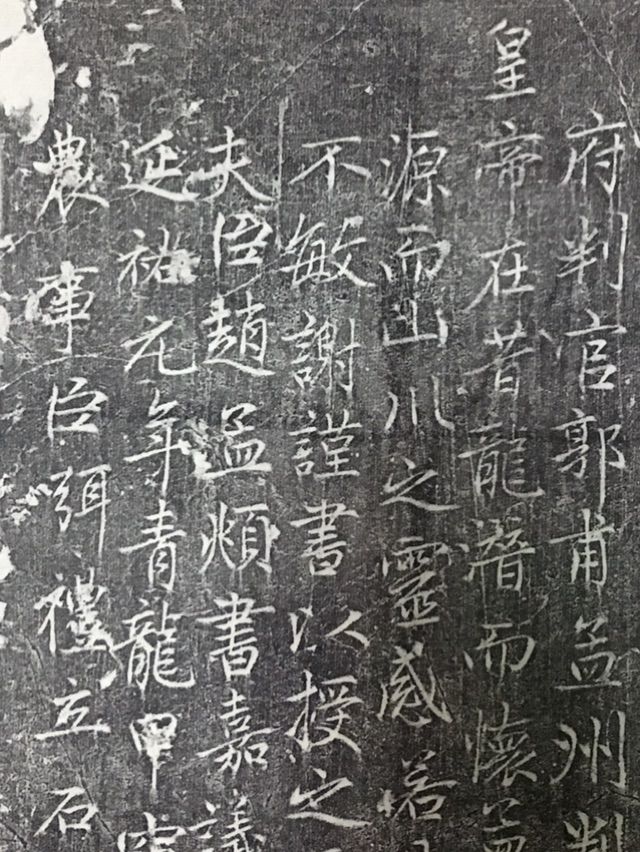 府判官郭甫孟州判
皇帝在昔龍潛而懷孟
源而山川之靈感若
不敏謝謹書以授之
夫臣趙孟頫書嘉議
延祐元年青龍甲寅
農事臣弭禮立石